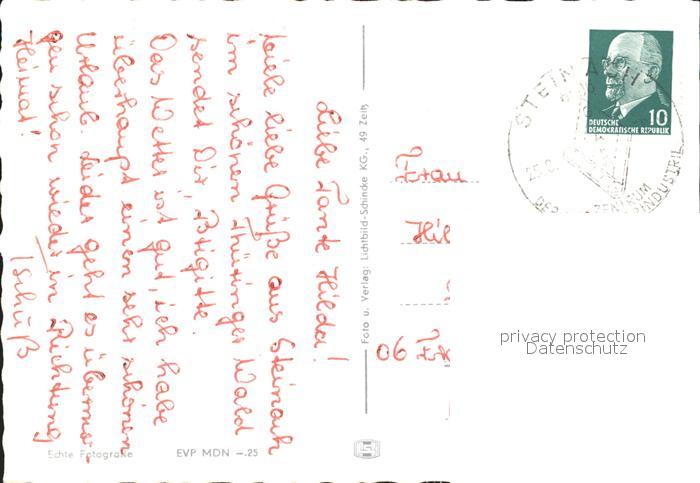 Liebe Tante Hilda!
Viele liebe Grüße aus Steinach
im schönen Thüringer Wald
sendet Dir Brigitte.
Das Wetter ist gut, ich habe
überhaupt einen sehr schönen
Urlaub. Leider geht es übermor-
gen schon wieder in Richtung
Heimat!
Tschüß
Echte Fotografie
EVP MDN –.25
Foto u. Verlag: Lichtbild-Schincke KG., 49 Zeitz
Frau
Hil
06
DEUTSCHE
DEMOKRATISCHE REPUBLIK
10
STEINACH
25.8.
ZENTRUM
privacy protection
Datenschutz